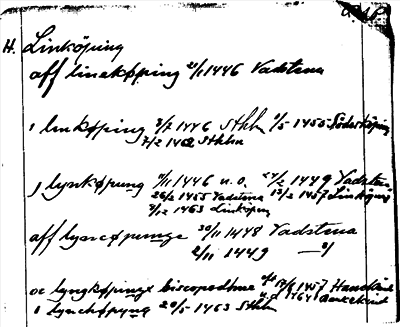 H. Linköping
aff lineköping 21/1 1446 Vadstena
i linkøping 3/7 1446 Sthlm 9/5 1455 Söderköping
7/2 1462 Sthlm
j lynkøpung 9/11 1446 u.o. 24/2 1449 Vadstena
26/2 1455 Vadstena 13/2 1457 Linköping
7/12 1463 Linköping
aff lyncøpunge 30/11 1448 Vadstena
2/11 1449 —"—
oc lyngkøpinge biscopsdøme 17/6 1457
i lynchöpyng 20/5 1463 Sthlm